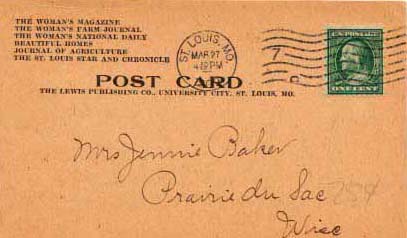 THE WOMAN'S MAGAZINE
THE WOMAN'S FARM JOURNAL
THE WOMAN'S NATIONAL DAILY
BEAUTIFUL HOMES
JOURNAL OF AGRICULTURE
THE ST. LOUIS STAR AND CHRONICLE
ST. LOUIS, MO.
MAR 27
PM
7
U.S. POSTAGE
ONE CENT
POST CARD
THE LEWIS PUBLISHING CO., UNIVERSITY CITY, ST. LOUIS, MO.
Mrs Jennie Baker
Prairie du Sac
Wisc